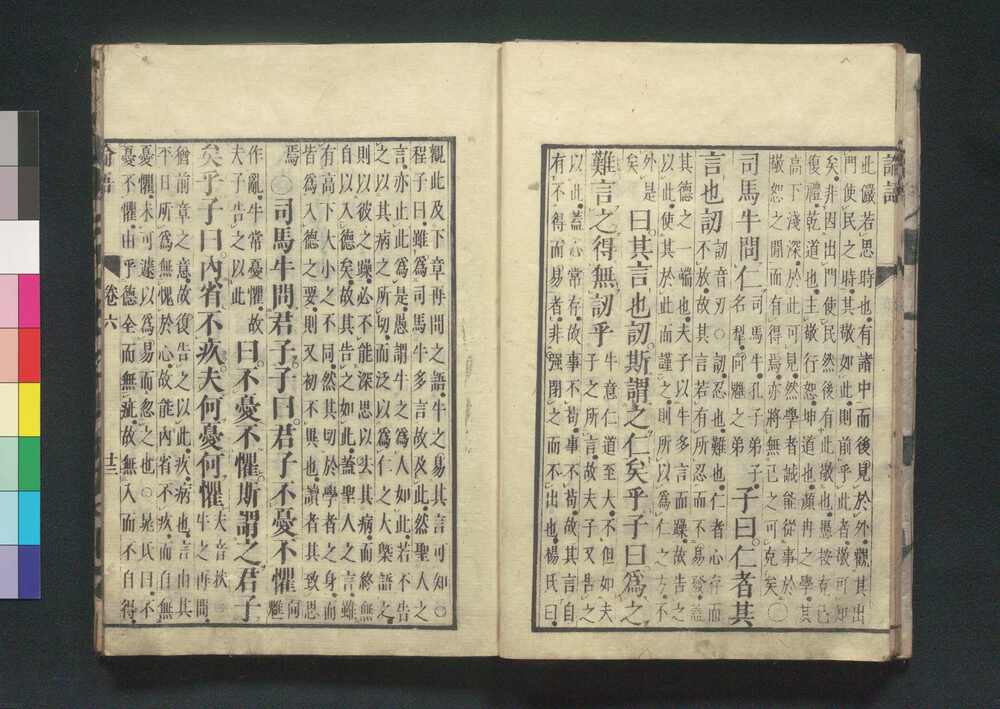 論語
此儼若思時也有諸中而後見於外觀其出
門使民之時其敬如此則前乎此者敬可知
矣非因出門使民然後有此敬也愚按克己
復禮乾道也主敬行恕坤道也顏冉之學其
高下淺深於此可見然學者誠能從事於
敬恕之間而有得焉亦將無己之可克矣○
司馬牛問仁司馬牛孔子弟子名犂向魋之弟子曰仁者其
言也訒訒音刃○訒忍也難也仁者心存而不放故其言若有所忍而不易發蓋
其德之一端也夫子以牛多言而躁故告之
以此使其於此而謹之則所以爲仁之方不
外是矣曰其言也訒斯謂之仁矣乎子曰爲之
難言之得無訒乎牛意仁道至大不但如夫子之所言故夫子又告之
以此蓋心常存故事不苟事不苟故其言自
有不得而易者非強閉之而不出也楊氏曰
觀此及下章再問之語牛之易其言可知○
程子曰雖爲司馬牛多言故及此然聖人之
言亦止此爲是愚謂牛之爲人如此若不告
之以其病之所切而泛以爲仁之大槩語之
則以彼之躁必不能深思以去其病而終無
自以入德矣故其告之如此蓋聖人之言雖
有高下大小之不同然其切於學者之身而
皆爲入德之要則又初不異也讀者其致思
焉○司馬牛問君子子曰君子不憂不懼向魋
作亂牛常憂懼故夫子告之以此曰不憂不懼斯謂之君子
矣乎子曰內省不疚夫何憂何懼夫音扶牛之再問
猶前章之意故復告之以此疚病也言由其
平日所爲無愧於心故能內省不疚而自無
憂懼未可遽以爲易而忽之也○晁氏曰不
憂不懼由乎德全而無疵故無入而不自得
論語 卷六 十三